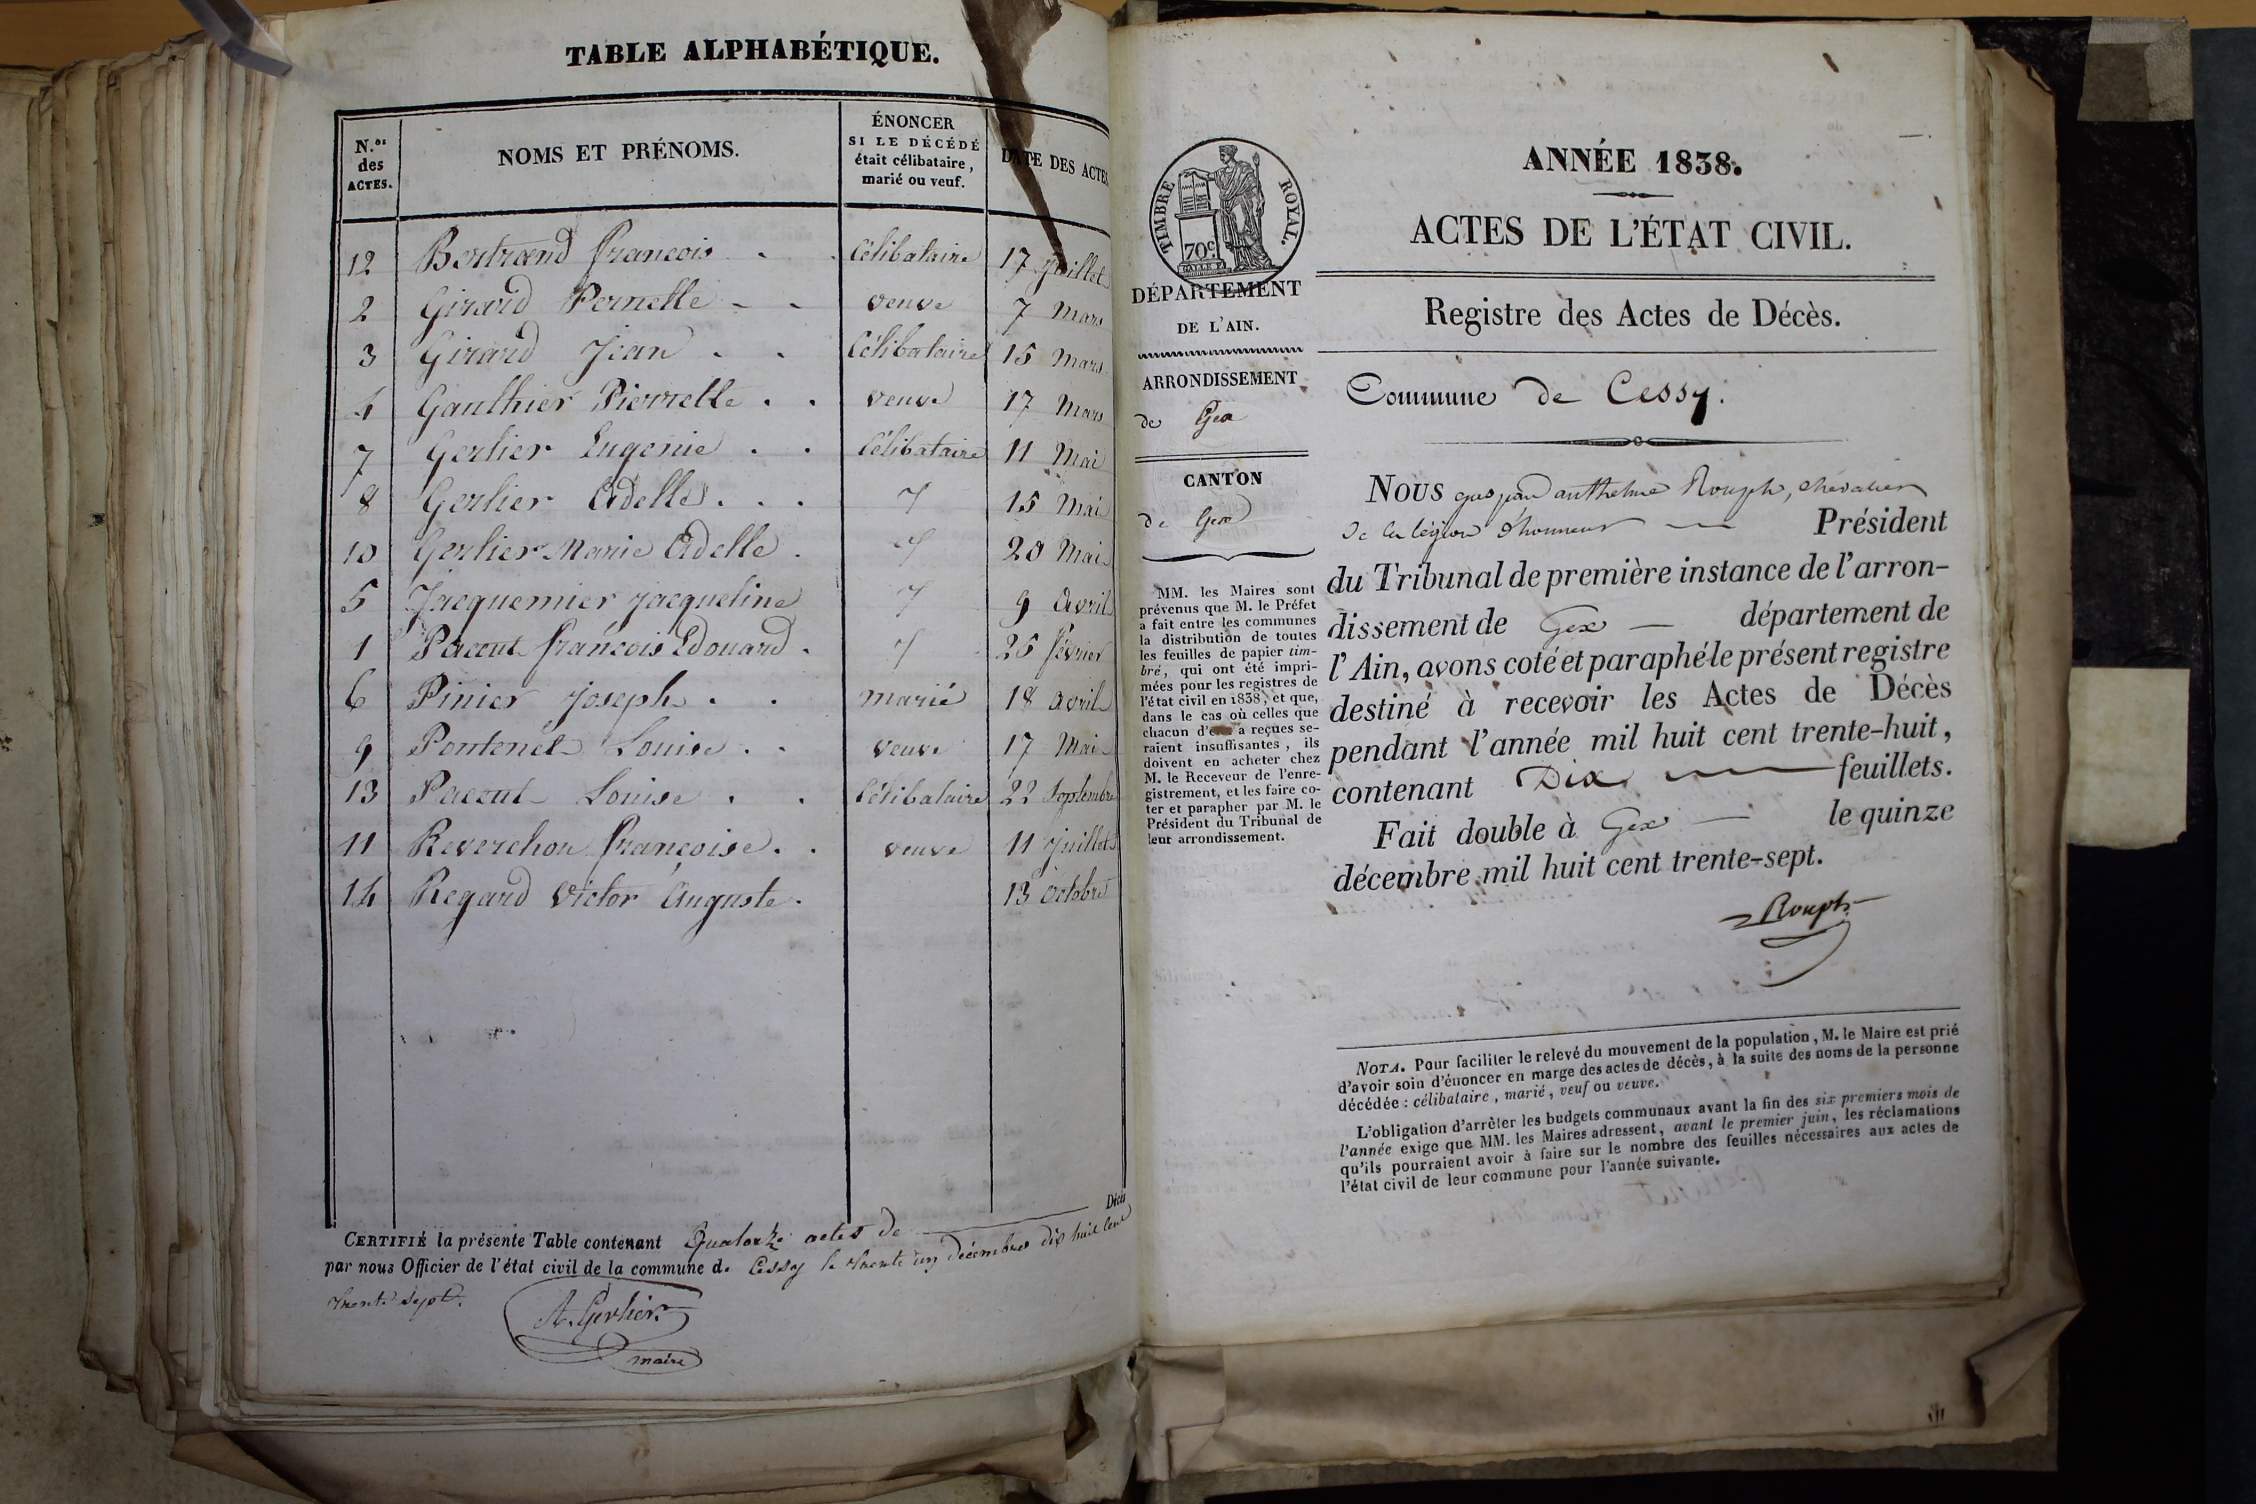 TABLE ALPHABÉTIQUE.
N.os des ACTES.
NOMS ET PRÉNOMS.
ÉNONCER SI LE DÉCÉDÉ était célibataire, marié ou veuf.
DATE DES ACTES
12 Bertrand françois . . Célibataire 17 Juillet
2 Girard Pernette - - veuve 7 Mars
3 Girard Jean . . Célibataire 15 Mars
4 Gauthier Pierrette . . veuve 17 Mars
7 Gerlier Eugenie . . Célibataire 11 Mai
8 Gerlier Adelle . . . 15 Mai
10 Gerlier Marie Adelle . 20 Mai
5 Jacquemier jacqueline 9 Avril
1 Pacout françois Edouard . 25 février
6 Pinier Joseph . . marié 18 avril
9 Pontenet Louise . . veuve 17 Mai
13 Pacout Louise . . Célibataire 22 Septembre
11 Reverchon françoise . . veuve 11 Juillet
14 Regard Victor Auguste . 13 Octobre
CERTIFIÉ la présente Table contenant Quatorze actes de Décès
par nous Officier de l'état civil de la commune d. Cessy le trente un décembre dix huit cent
trente sept.
A. Gerlier
maire
TIMBRE ROYAL.
70c.
DÉPARTEMENT
DE L'AIN.
ARRONDISSEMENT
de Gex
CANTON
de Gex
MM. les Maires sont
prévenus que M. le Préfet
a fait entre les communes
la distribution de toutes
les feuilles de papier tim-
bré, qui ont été impri-
mées pour les registres de
l'état civil en 1838, et que,
dans le cas où celles que
chacun d'eux a reçues se-
raient insuffisantes, ils
doivent en acheter chez
M. le Receveur de l'enre-
gistrement, et les faire co-
ter et parapher par M. le
Président du Tribunal de
leur arrondissement.
ANNÉE 1838.
ACTES DE L'ÉTAT CIVIL.
Registre des Actes de Décès.
Commune de Cessy.
NOUS gaspard anthelme Rouph, chevalier
de la légion d'honneur — Président
du Tribunal de première instance de l'arron-
dissement de Gex — département de
l'Ain, avons coté et paraphé le présent registre
destiné à recevoir les Actes de Décès
pendant l'année mil huit cent trente-huit,
contenant Dix — feuillets.
Fait double à Gex — le quinze
décembre mil huit cent trente-sept.
Rouph
NOTA. Pour faciliter le relevé du mouvement de la population, M. le Maire est prié
d'avoir soin d'énoncer en marge des actes de décès, à la suite des noms de la personne
décédée : célibataire, marié, veuf ou veuve.
L'obligation d'arrêter les budgets communaux avant la fin des six premiers mois de
l'année exige que MM. les Maires adressent, avant le premier juin, les réclamations
qu'ils pourraient avoir à faire sur le nombre des feuilles nécessaires aux actes de
l'état civil de leur commune pour l'année suivante.